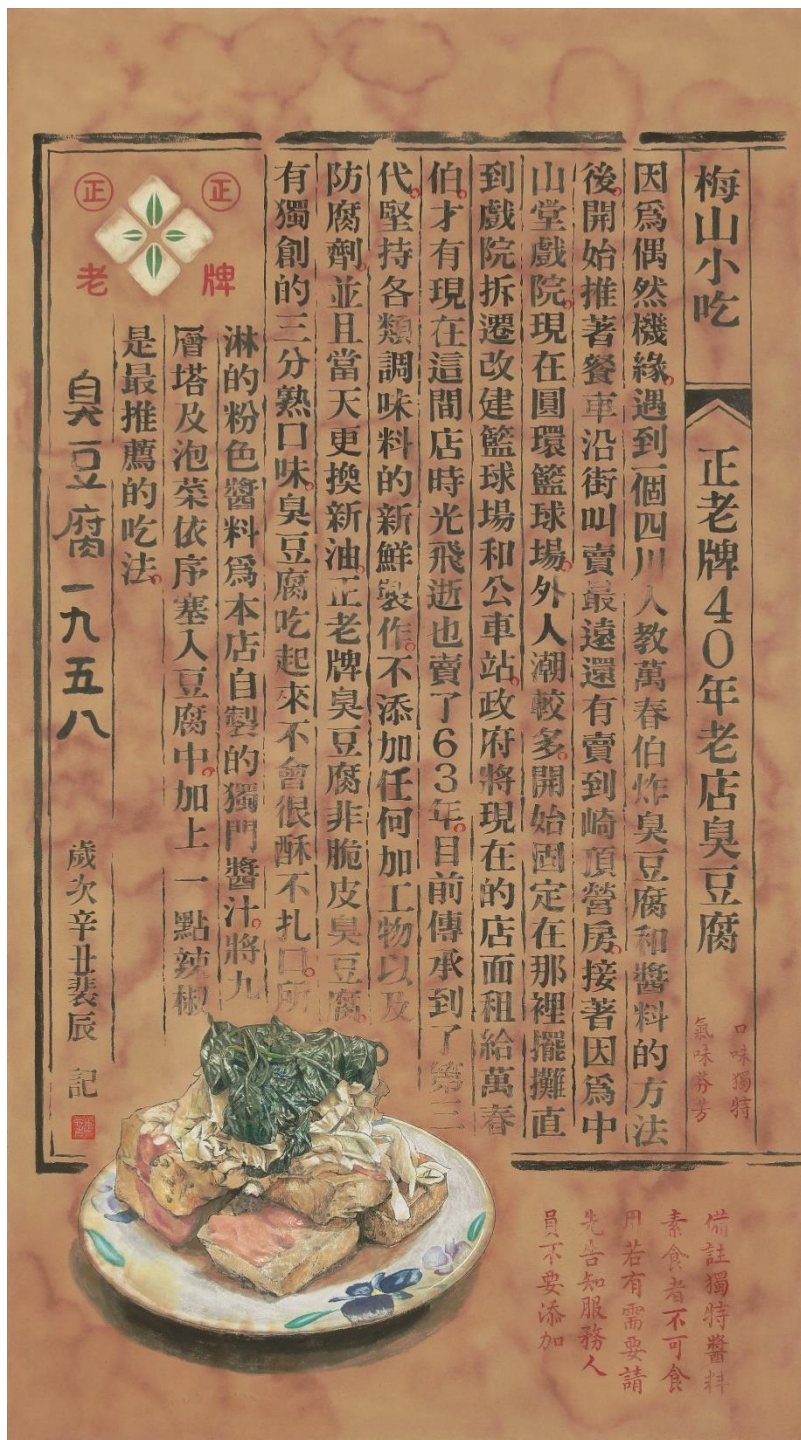 梅山小吃
正老牌40年老店臭豆腐
口味獨特
氣味芬芳
因爲偶然機緣。遇到一個四川人教萬春伯炸臭豆腐和醬料的方法
後。開始推著餐車沿街叫賣最遠還有賣到崎頂營房。接著因爲中
山堂戲院。現在圓環籃球場。外人潮較多。開始固定在那裡擺攤直
到戲院拆遷改建籃球場和公車站。政府將現在的店面租給萬春
伯。才有現在這間店時光飛逝也賣了63年。目前傳承到了第三
代。堅持各類調味料的新鮮製作。不添加任何加工物以及
防腐劑。並且當天更換新油。正老牌臭豆腐非脆皮臭豆腐。
有獨創的三分熟口味。臭豆腐吃起來不會很酥不扎口。所
淋的粉色醬料爲本店自製的獨門醬汁。將九
層塔及泡菜依序塞入豆腐中。加上一點辣椒
是最推薦的吃法。
正 正
老 牌
臭豆腐一九五八
歲次辛丑裴辰 記
備註獨特醬料
素食者不可食
用若有需要請
先告知服務人
員不要添加